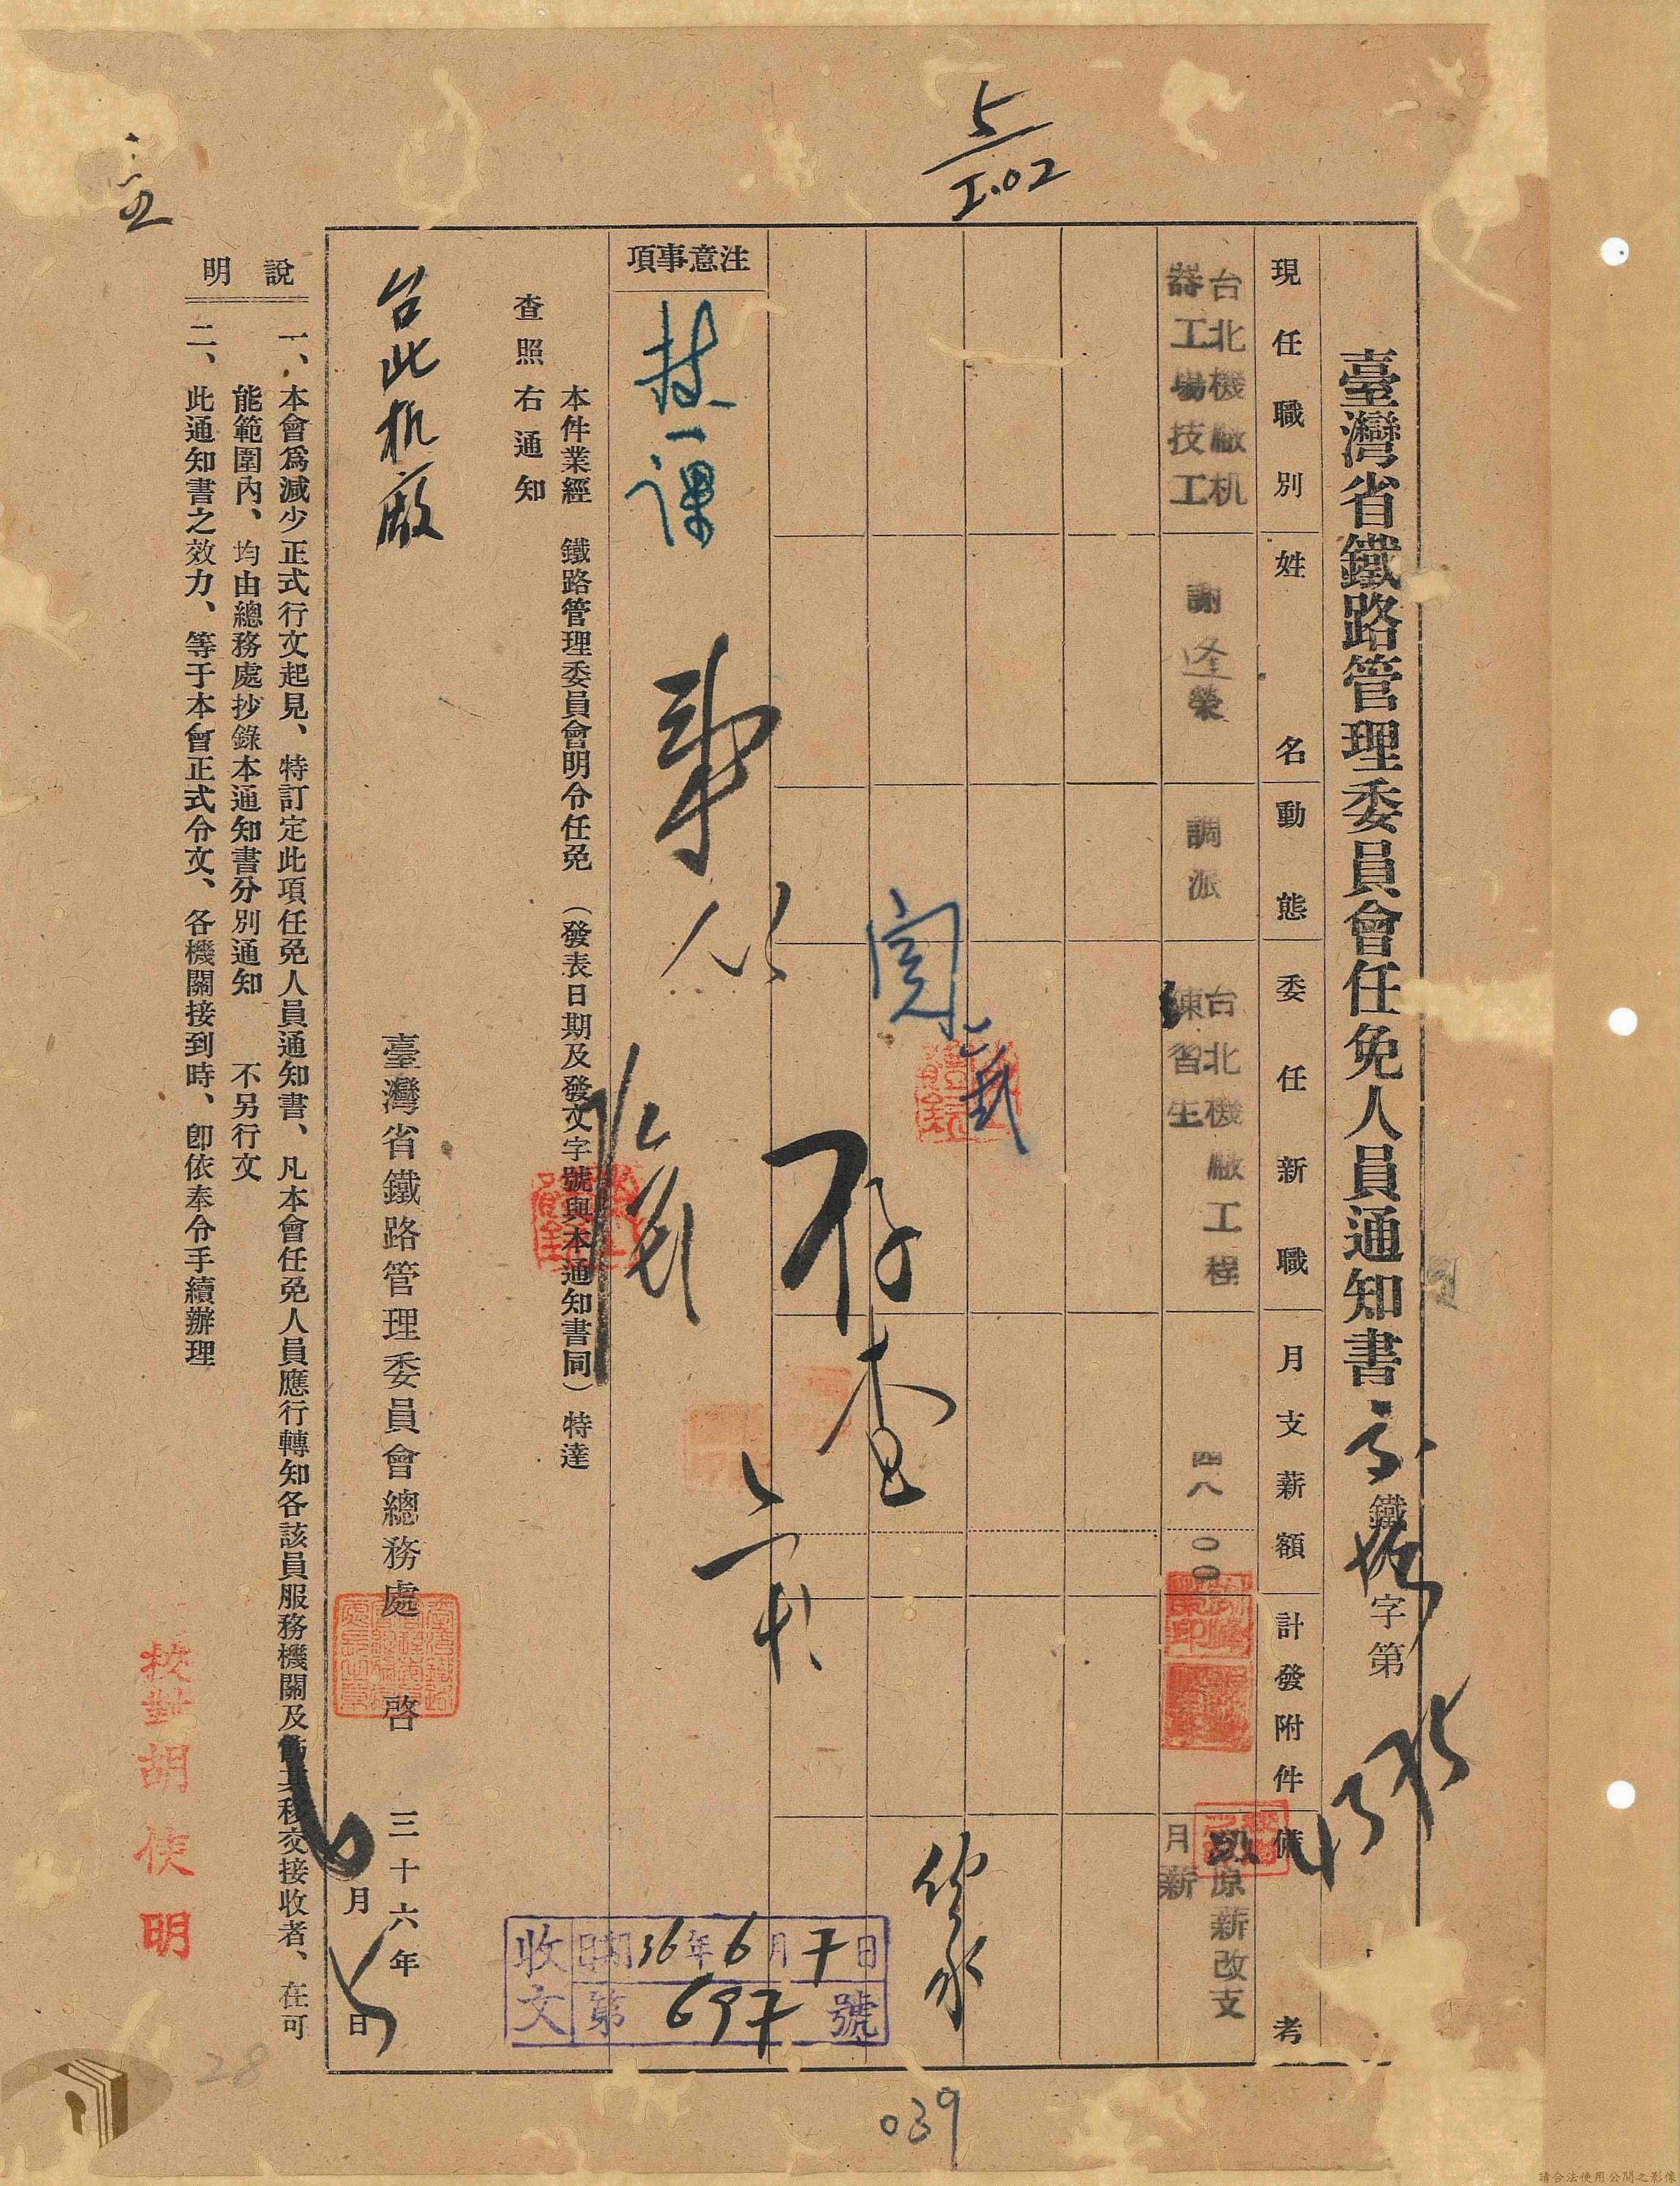 5/I.02
臺灣省鐵路管理委員會任免人員通知書
鐵 字第
現任職別
姓名
動態
委任新職
月支薪額
計發附件
備考
台北機廠机
器工場技工
謝逢榮
調派
台北機廠工程
練習生
四八
〇〇
照原薪改支
月薪
閱
存查
注意事項
技一課
本件業經 鐵路管理委員會明令任免 (發表日期及發文字號與本通知書同) 特達
查照 右通知
台北机廠
臺灣省鐵路管理委員會總務處 啓 三十六年
6月5日
收文
日期36年6月7日
第697號
說明
一、本會爲減少正式行文起見、特訂定此項任免人員通知書、凡本會任免人員應行轉知各該員服務機關及飭其移交接收者、在可
能範圍內、均由總務處抄錄本通知書分別通知 不另行文
二、此通知書之效力、等于本會正式令文、各機關接到時、卽依奉令手續辦理
校對胡使明
28
039
請合法使用公開之影像